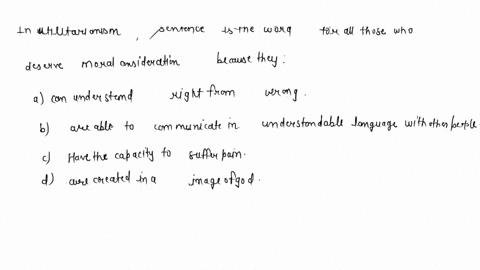 In utilitarionism , sentence is the word for all those who
deserve moral consideration because they :
a) can understand right from wrong .
b) are able to communicate in understandable language with other people.
c) Have the capacity to suffer pain.
d) are created in a image of god .